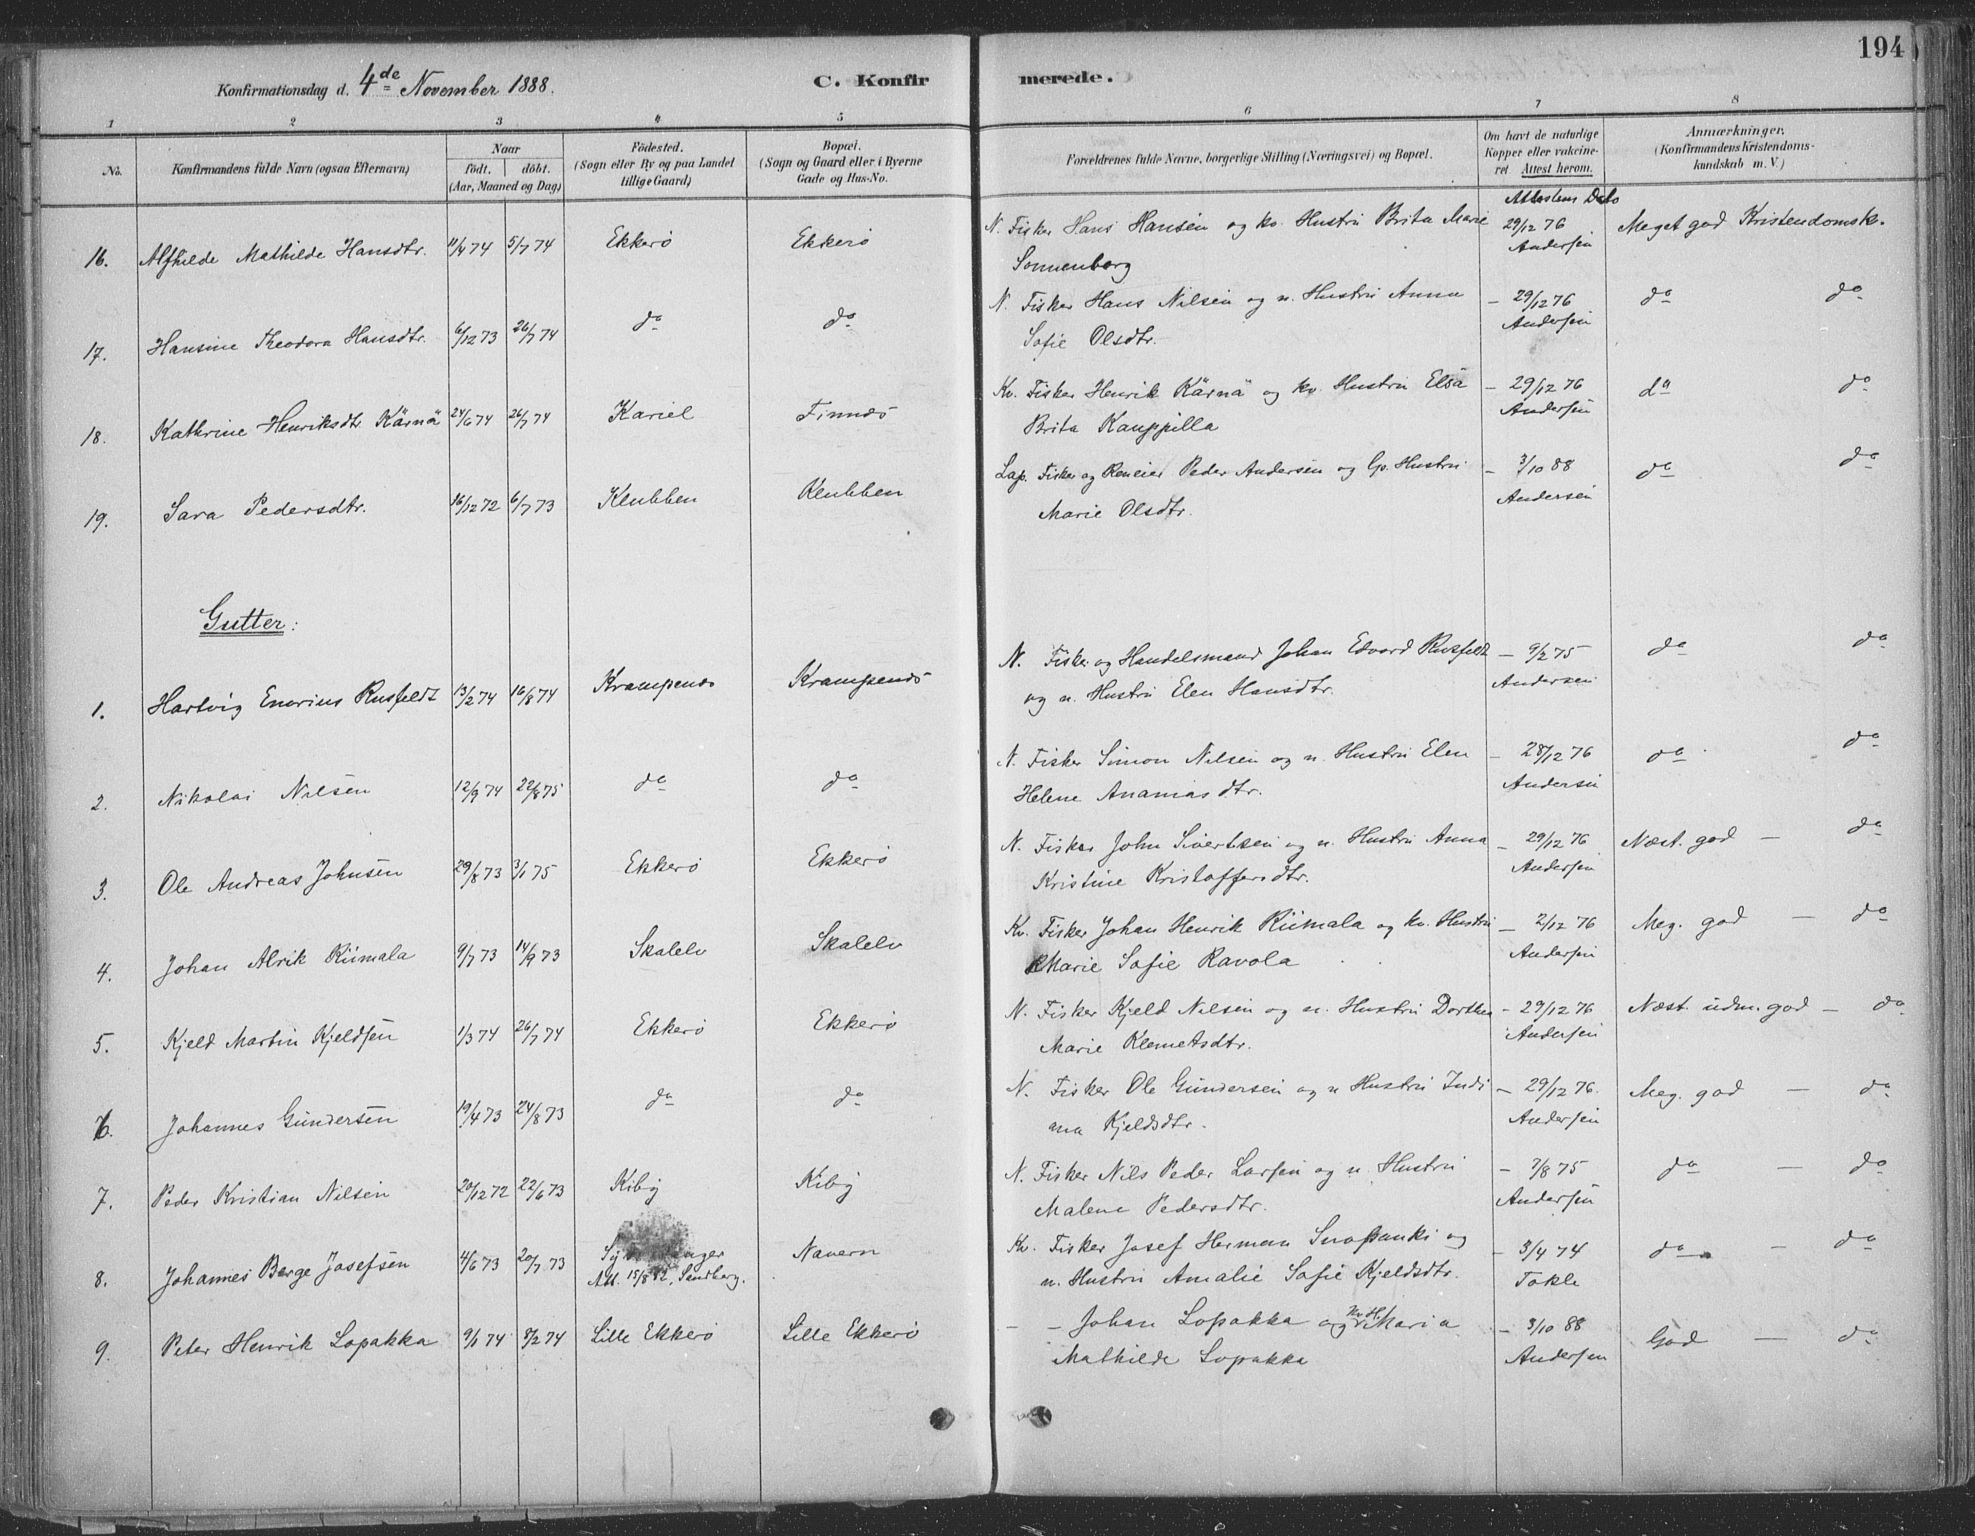 194
Konfirmationsdag d. 4de November 1888.
C. Konfirmerede.
1 2 3 4 5 6 7 8
No.
Konfirmandens fulde Navn (ogsaa Efternavn)
Naar
födt. döbt.
(Aar, Maaned og Dag)
Födested.
(Sogn eller By og paa Landet
tillige Gaard)
Bopæl.
(Sogn og Gaard eller i Byerne
Gade og Hus-No.
Forældrenes fulde Navne, borgerlige Stilling (Næringsvei) og Bopæl.
Om havt de naturlige
Kopper eller vakcine-
ret Attest herom.
Anmærkninger.
(Konfirmandens Kristendoms-
kundskab m. V.)
Attestens Dato
16. Alfhilde Mathilde Hansdtr. 11/4 74 5/7 74 Ekkerö Ekkerö N. Fisker Hans Hansen og kv. Hustru Brita Marie 29/12 76 Meget god Kristendomsk.
Sonnenborg Andersen
17. Hansine Theodora Hansdtr. 6/12 73 26/7 74 do do N. Fisker Hans Nilsen og n. Hustru Anna – 29/12 76 do do
Sofie Olsdtr. Andersen
18. Kathrine Henriksdtr. Kärnä 24/6 74 26/7 74 Kariel Finnæs Kv. Fisker Henrik Kärnä og kv. Hustru Elsa – 29/12 76 do do
Brita Kauppilla Andersen
19. Sara Pedersdtr. 16/12 72 6/7 73 Klubben Klubben Lap. Fisker og Reneier Peder Andersen og lp. Hustru – 3/10 88 do do
Marie Olsdtr. Andersen
Gutter:
1. Hartvig Enorius Rusfeldt 13/2 74 16/8 74 Krampenæs Krampenæs N. Fisker og Handelsmand Johan Edvard Rusfeldt – 9/2 75 do do
og n. Hustru Elen Hansdtr. Andersen
2. Nikolai Nilsen 12/9 74 22/8 75 do do N. Fisker Simon Nilsen og n. Hustru Elen – 28/12 76 do do
Helene Ananiasdtr. Andersen
3. Ole Andreas Johnsen 29/8 73 3/1 75 Ekkerö Ekkerö N. Fisker John Sivertsen og n. Hustru Anna – 29/12 76 Næst. god – do
Kristine Kristoffersdtr. Andersen
4. Johan Alrik Riimala 9/7 73 14/9 73 Skalelv Skalelv Kv. Fisker Johan Henrik Riimala og kv. Hustru – 2/12 76 Meg. god – do
Marie Sofie Ravola Andersen
5. Kjeld Martin Kjeldsen 1/3 74 26/7 74 Ekkerö Ekkerö N. Fisker Kjeld Nilsen og n. Hustru Dorthea – 29/12 76 Næst. udm. god – do
Marie Klemetsdtr. Andersen
6. Johannes Gundersen 19/4 73 24/8 73 do do N. Fisker Ole Gundersen og n Hustru Indi – 29/12 76. Meg. god – do
ana Kjeldsdtr. Andersen
7. Peder Kristian Nilsen 20/12 72 22/6 73 Kiby Kiby N. Fisker Nils Peder Larsen og n. Hustru – 7/8 75 do – do
Malene Pedersdtr. Andersen
8. Johannes Berge Josefsen 4/6 73 20/7 73 Navern Kv. Fisker Josef Herman og – 3/4 74 do – do
Att. 15/8 82, Sandberg. n. Hustru Amalie Sofie Kjeldsdtr. Tokle
9. Peter Henrik Lopakka 9/1 74 8/2 74 Lille Ekkerö Lille Ekkerö – – Johan Lopakka og kv H. Maria – 3/10 88 God – do
Mathilde Lopakka Andersen